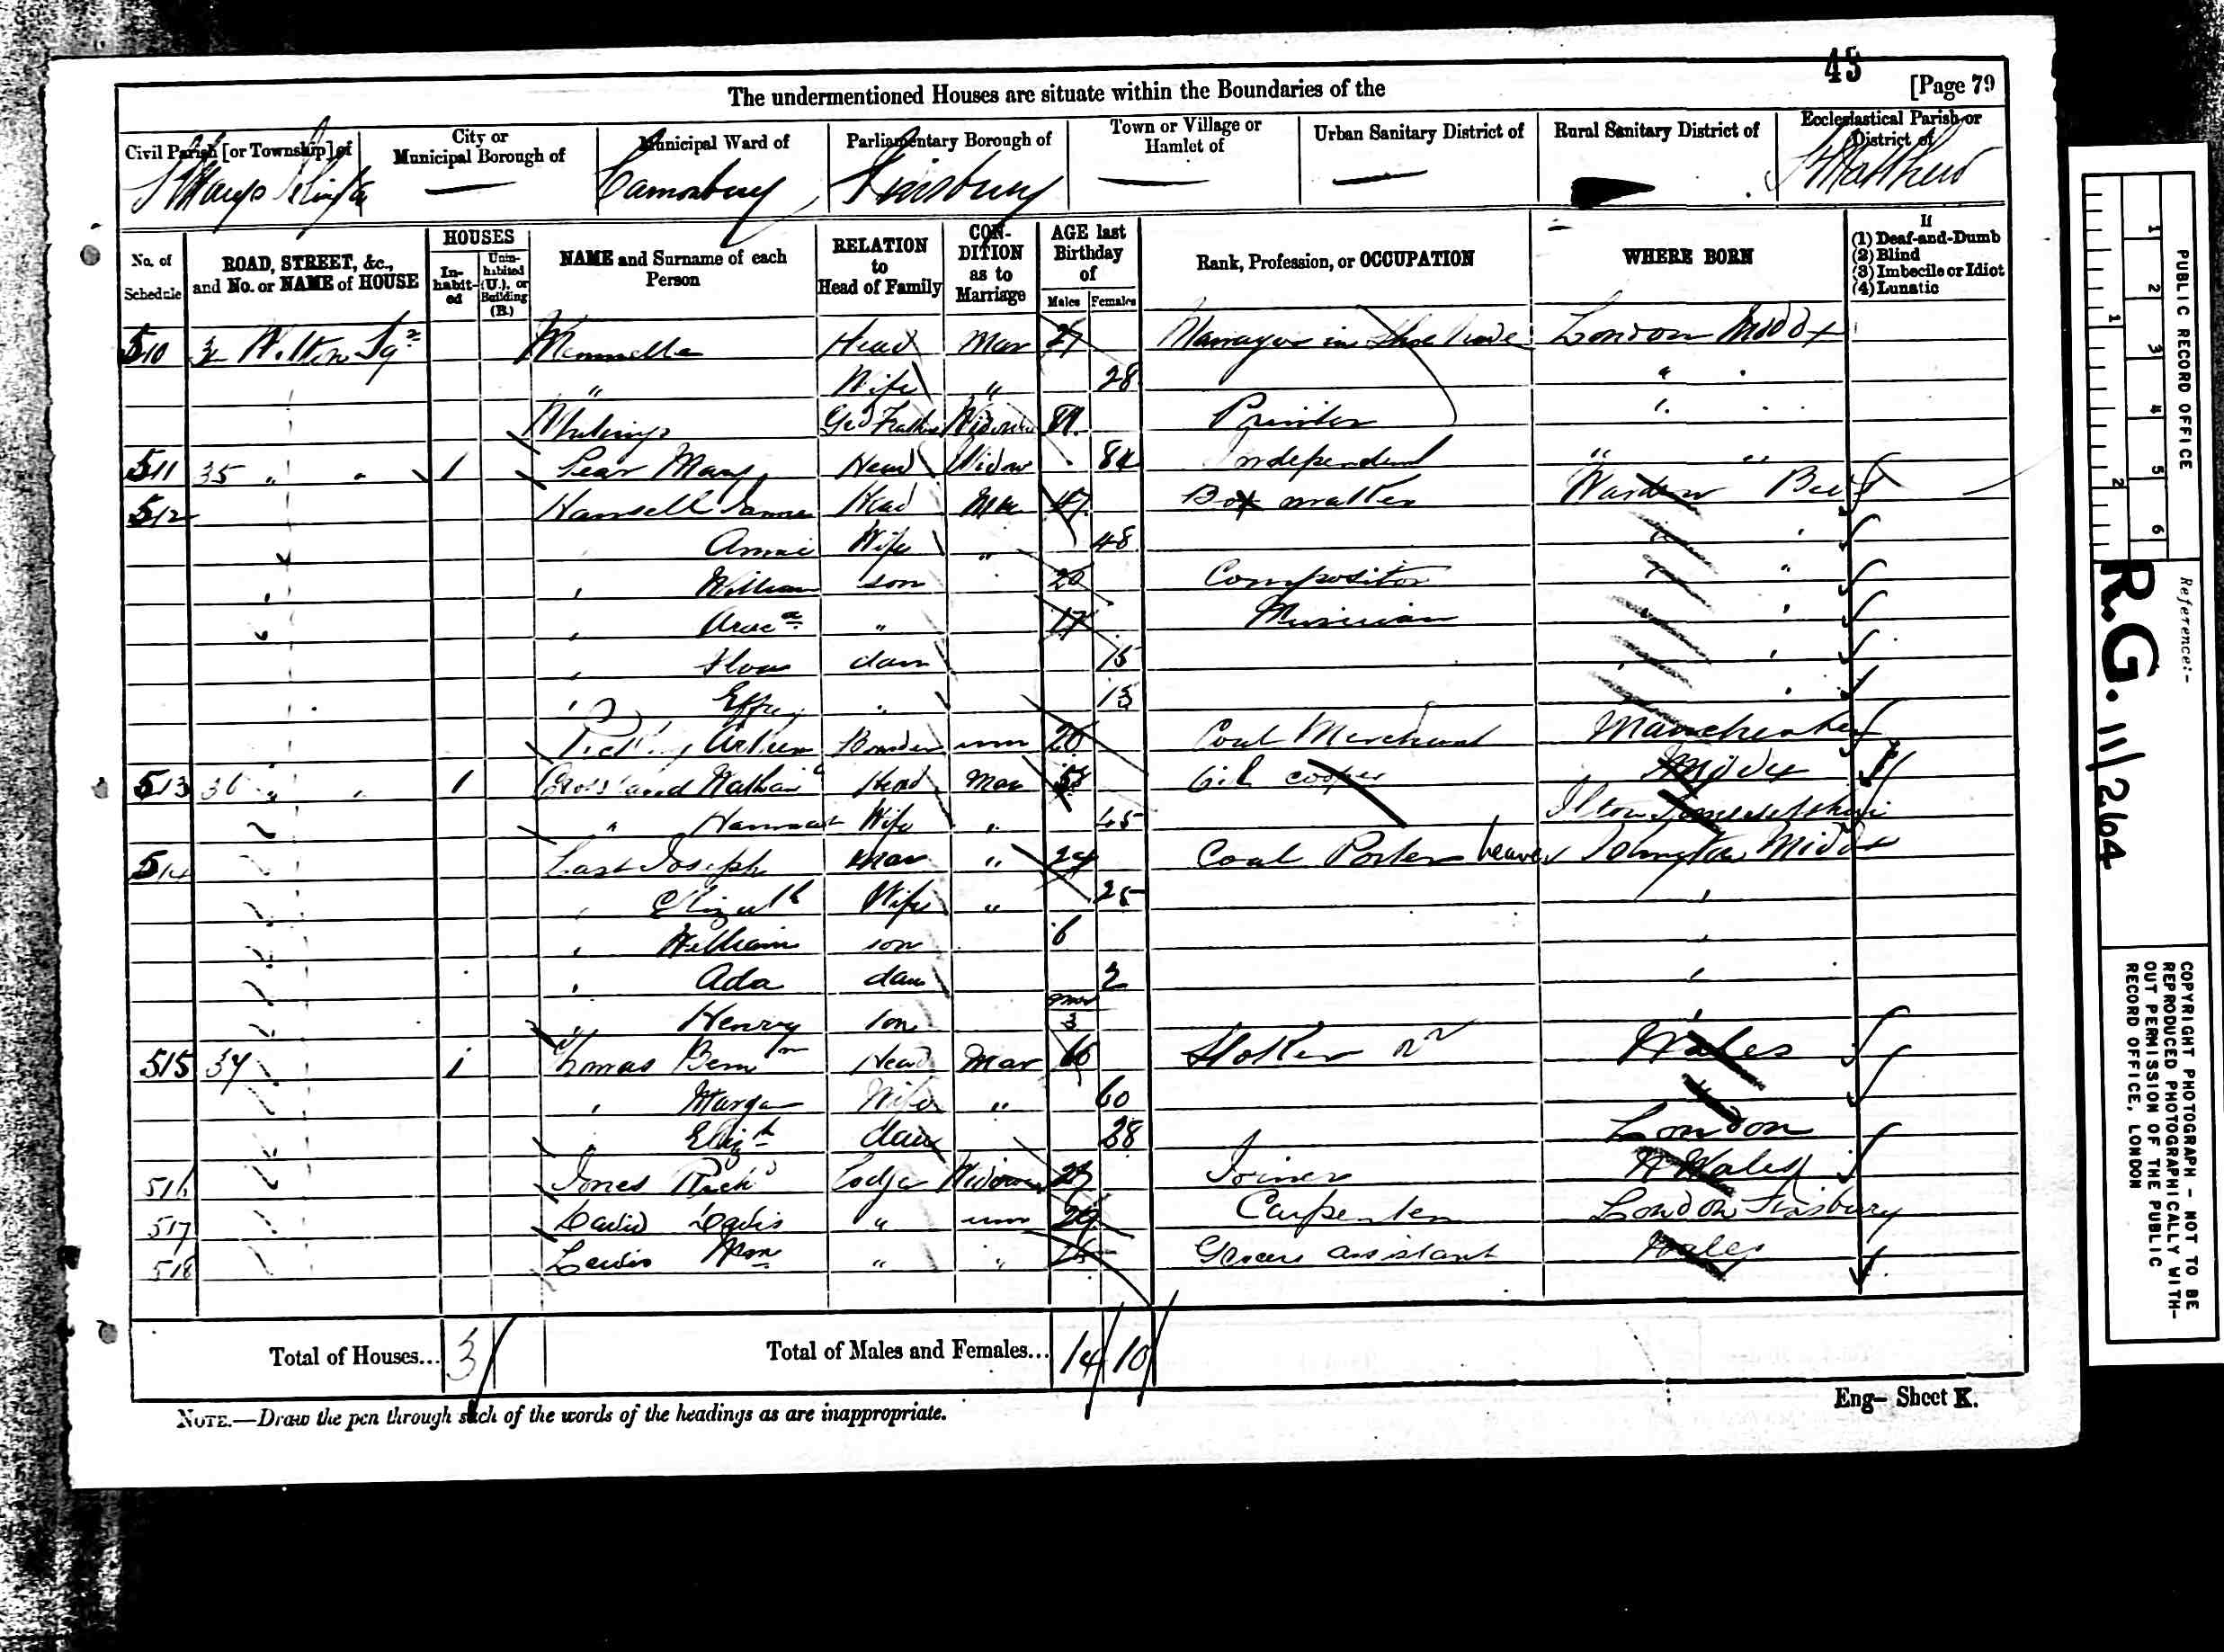 43
The undermentioned Houses are situate within the Boundaries of the [Page 79
Civil Parish [or Township] of
City or Municipal Borough of
Municipal Ward of
Parliamentary Borough of
Town or Village or Hamlet of
Urban Sanitary District of
Rural Sanitary District of
Ecclesiastical Parish or District of
St Marys Islington — Canonbury Finsbury — — St Matthew
No. of Schedule
ROAD, STREET, &c., and No. or NAME of HOUSE
HOUSES
In-habit-ed
Unin-habited (U.), or Building (B.)
NAME and Surname of each Person
RELATION to Head of Family
CON-DITION as to Marriage
AGE last Birthday of
Males Females
Rank, Profession, or OCCUPATION
WHERE BORN
If
(1) Deaf-and-Dumb
(2) Blind
(3) Imbecile or Idiot
(4) Lunatic
510 Wilton Sqre Head Mar 27 Manager in Shoe Trade London Middx
" Wife " 28 "
Father Widower Printer "
511 35 " " 1 Mary Head Widow 84 Independent " "
512 Hansell James Head Mar 47 Box maker Warden
Annie Wife " 48 "
" William son 20 Compositor " "
" " 17 Musician "
" Flora daur 15 "
" " 13 "
Arthur Boarder unm 20 Coal Merchant Manchester
513 36 " " 1 Crossland Head Mar 53 Oil cooper Middx
" Hannah Wife " 45 Ilton Somersetshire
514 Last Joseph Mar " 24 Coal Porter heaver Islington Middx
" Elizath Wife " 25 "
" William son 6 "
" Ada daur 2 "
" Henry son 3 mos "
515 37 1 Thomas Benjn Head Mar 66 Stoker Wales
" Margar Wife " 60 "
" Elizth daur 28 London
516 Jones Richd Lodger Widower 27 Joiner N Wales
517 David Davis " unm 29 Carpenter London Finsbury
518 Lewis Wm " " 25 Grocers assistant Wales
Total of Houses... 3
Total of Males and Females... 14 10
NOTE.—Draw the pen through such of the words of the headings as are inappropriate.
Eng— Sheet K.
PUBLIC RECORD OFFICE
1 2 3 4 5 6
1 2
Reference:-
R.G. 11/264
COPYRIGHT PHOTOGRAPH - NOT TO BE
REPRODUCED PHOTOGRAPHICALLY WITH-
OUT PERMISSION OF THE PUBLIC
RECORD OFFICE, LONDON